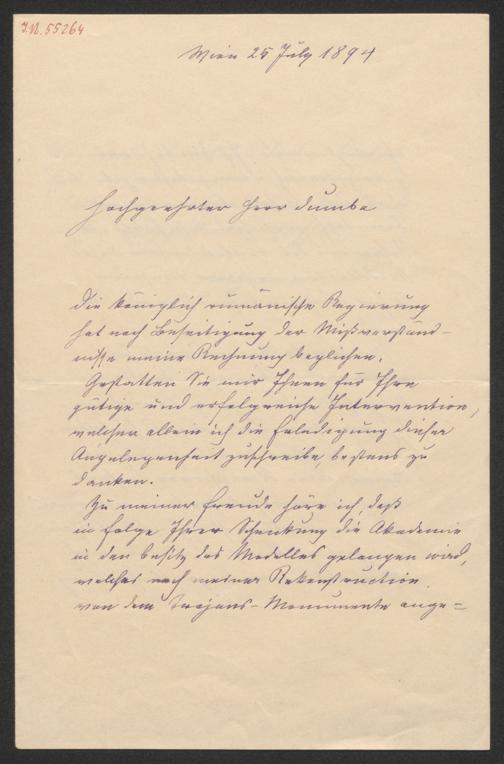 J.N. 55264
Wien 25 July 1894
Hochgeehrter Herr Dumba
Die königlich rumänische Regierung
hat nach Beseitigung der Mißverständ-
nisse meine Rechnung beglichen.
Gestatten Sie mir Ihnen für Ihre
gütige und erfolgreiche Intervention,
welcher allein ich die Erledigung dieser
Angelegenheit zuschreibe, bestens zu
danken.
Zu meiner Freude höre ich, daß
in Folge Ihrer Schenkung die Akademie
in den Besitz des Modelles gelangen wird,
welches nach meiner Rekonstruction
von dem Trajans-Monumente ange=